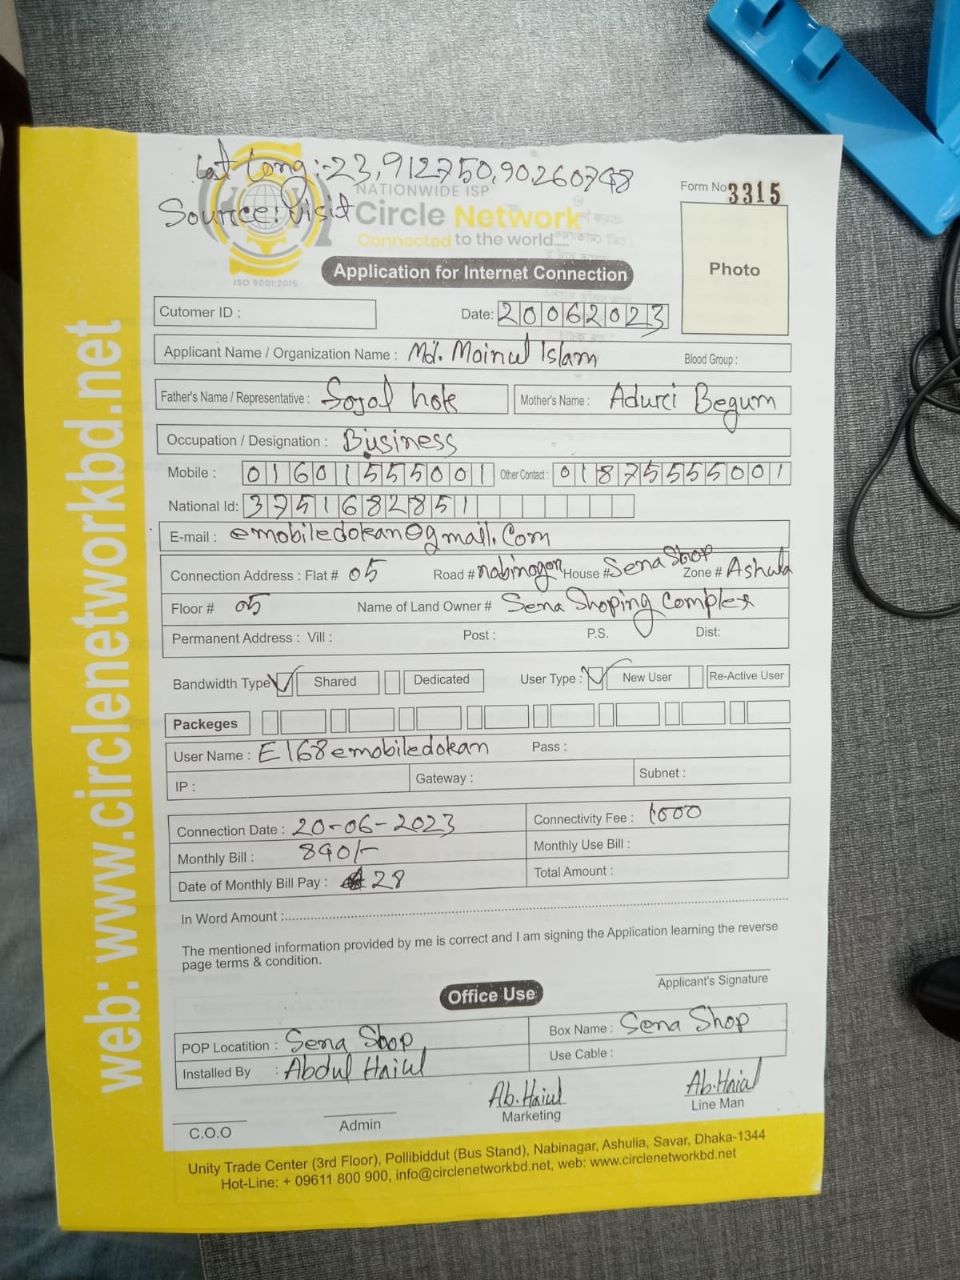 Lat Long :-23,912750,90260748
Source: Visit
NATIONWIDE ISP
Circle Network
Connected to the world.....
ISO 9001:2015
Form No 3315
Photo
Application for Internet Connection
Cutomer ID :
Date: 20062023
Applicant Name / Organization Name : Md. Moinul Islam Blood Group :
Father's Name / Representative : Sojol hok Mother's Name : Adurci Begum
Occupation / Designation : Business
Mobile : 01601555001 Other Contact : 01875555001
National Id: 3751682851
E-mail : emobiledokan@gmail.Com
Connection Address : Flat # 05 Road # nabinagar House # Sena Shop Zone # Ashula
Floor # 05 Name of Land Owner # Sena Shoping Complex
Permanent Address : Vill : Post : P.S. Dist:
Bandwidth Type Shared Dedicated User Type : New User Re-Active User
Packeges
User Name : E168emobiledokan Pass :
IP : Gateway : Subnet :
Connection Date : 20-06-2023 Connectivity Fee : 1000
Monthly Bill : 890/- Monthly Use Bill :
Date of Monthly Bill Pay : 28 Total Amount :
In Word Amount :
The mentioned information provided by me is correct and I am signing the Application learning the reverse
page terms & condition.
Applicant's Signature
Office Use
POP Locatition : Sena Shop Box Name : Sena Shop
Installed By : Abdul Haiul Use Cable :
Ab.Haiul Ab.Haial
C.O.O Admin Marketing Line Man
Unity Trade Center (3rd Floor), Pollibiddut (Bus Stand), Nabinagar, Ashulia, Savar, Dhaka-1344
Hot-Line: + 09611 800 900, info@circlenetworkbd.net, web: www.circlenetworkbd.net
web: www.circlenetworkbd.net